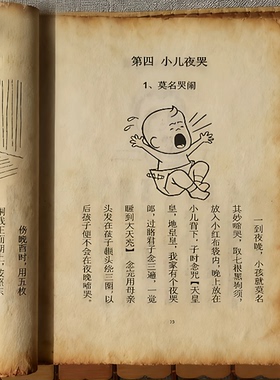 第四 小儿夜哭
1、莫名哭闹
一到夜晚，小孩就莫名
其妙啼哭，取七根黑狗须，
放入小红布袋内，晚上放在
小儿背下，子时念咒【天皇
皇，地皇皇，我家有个夜哭
郎，过路君子念三遍，一觉
睡到大天亮】念完用母亲
头发在孩子额头绕三圈，以
后孩子便不会在夜晚啼哭。
傍晚酉时，用五枚